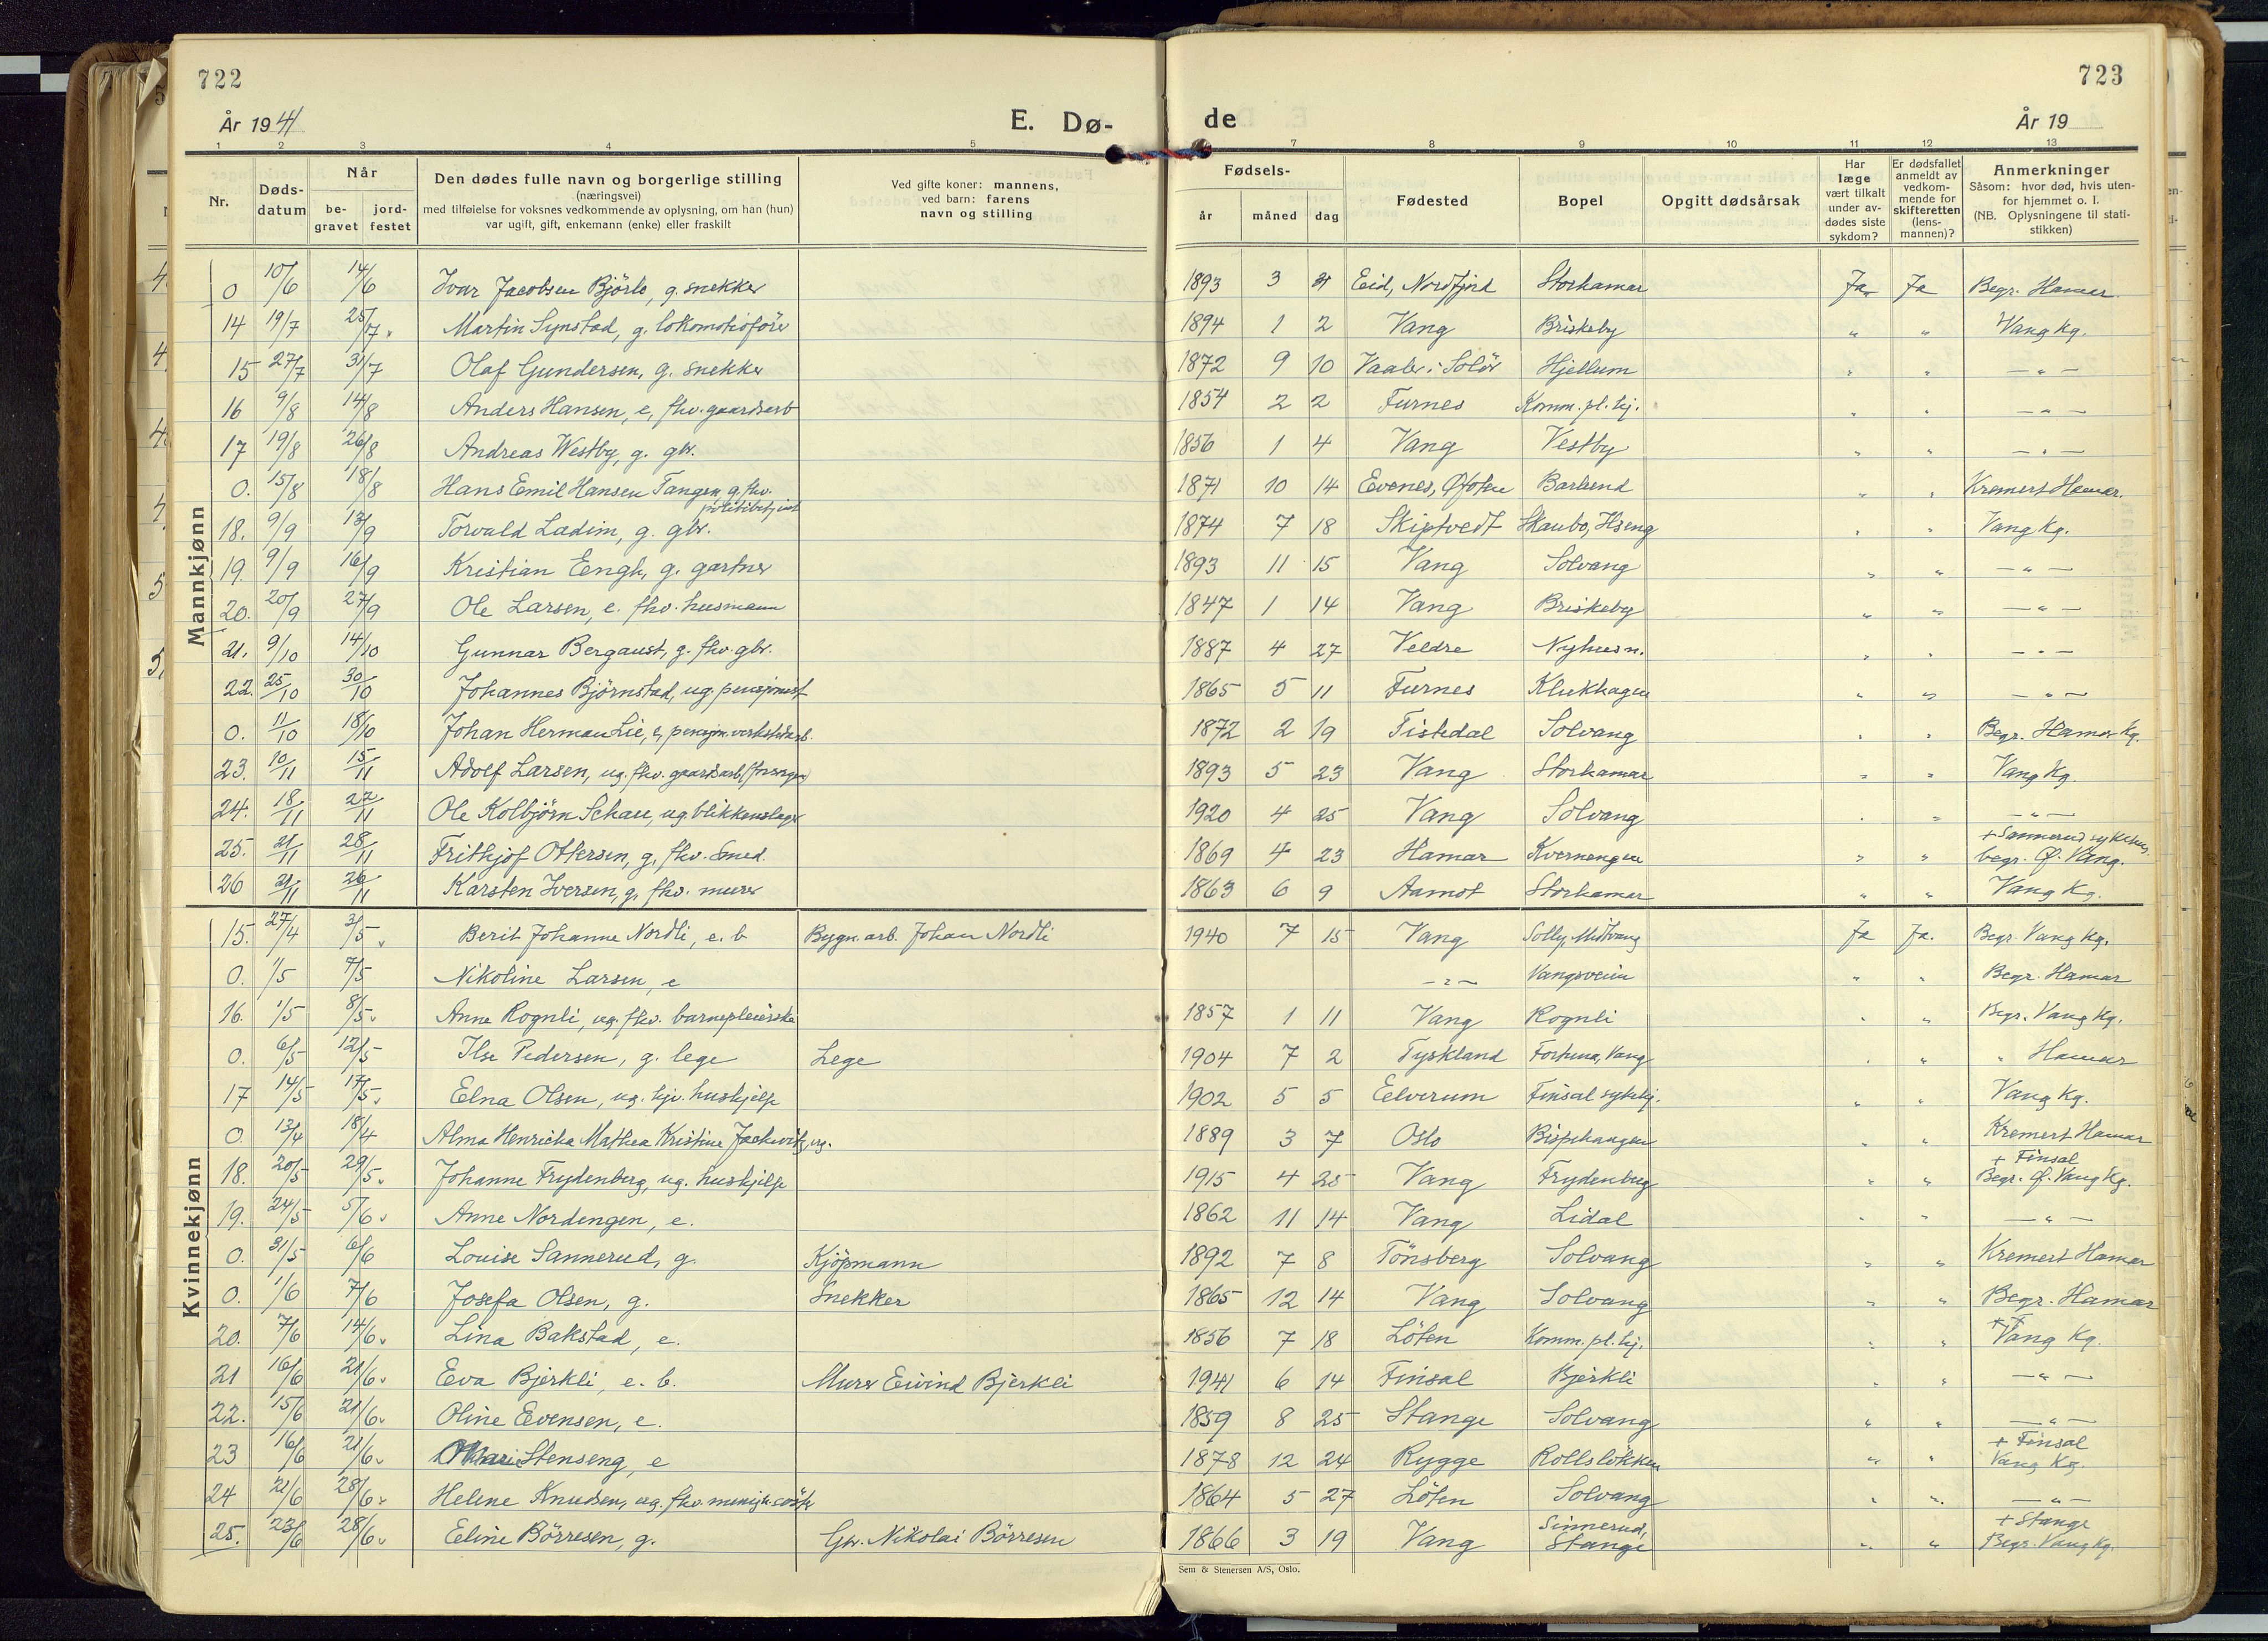 722
723
År 1941
E. Dø-
de
År 19
1 2 3 4 5
7 8 9 10 11 12 13
Nr.
Døds-
datum
Når
be-
gravet
jord-
festet
Den dødes fulle navn og borgerlige stilling
(næringsvei)
med tilføielse for voksnes vedkommende av oplysning, om han (hun)
var ugift, gift, enkemann (enke) eller fraskilt
Ved gifte koner: mannens,
ved barn: farens
navn og stilling
Fødsels-
år
måned
dag
Fødested
Bopel
Opgitt dødsårsak
Har
læge
vært tilkalt
under av-
dødes siste
sykdom?
Er dødsfallet
anmeldt av
vedkom-
mende for
skifteretten
(lens-
mannen)?
Anmerkninger
Såsom: hvor død, hvis uten-
for hjemmet o. l.
(NB. Oplysningene til stati-
stikken)
Mannkjønn
0 10/6 14/6 Ivar Jacobsen Bjørlo, g. snekker 1893 3 Eid, Nordfjord Storhamar Ja Ja Begr. Hamar
14 19/7 25/7 Martin Synstad, g. lokomotivförer 1894 1 2 Vang Briskeby " " Vang kg.
15 27/7 31/7 Olaf Gundersen, g. snekker 1872 9 10 Vaaler i Solör Hjellum " " — " —
16 9/8 14/8 Anders Hansen, e, fhv. gaardsarb 1854 2 2 Furnes Komm. pl. hj. " " — " —
17 19/8 26/8 Andreas Westby, g. gbr. 1856 1 4 Vang Vestby " " — " —
0. 15/8 18/8 Hans Emil Hansen Tangen, g. fhv. politibetjent 1871 10 14 Evenes, Ofoten Barlund " " Kremert Hamar.
18. 9/9 13/9 Torvald Ladim, g. gbr. 1874 7 18 Skiptvedt Skaubo, Hseng " " Vang Kg.
19. 9/9 16/9 Kristian Eengh, g. gartner 1893 11 15 Vang Solvang " " — " —
20. 20/9 27/9 Ole Larsen, e. fhv. husmann 1847 1 14 Vang Briskeby " " — " —
21. 9/10 14/10 Gunnar Bergaust, g. fhv. gbr. 1887 4 27 Veldre Nyhusn. " " — " —
22. 25/10 30/10 Johannes Bjørnstad, ug. pensjonist 1865 5 11 Furnes Klukhagen " " — " —
0. 11/10 18/10 Johan Herman Lie, e, pensjon. verkstedarb. 1872 2 19 Tistedal Solvang " " Begr. Hamar Kg.
23. 10/11 15/11 Adolf Larsen, ug. fhv. gaardsarb. 1893 5 23 Vang Storhamar " " Vang Kg.
24. 18/11 22/11 Ole Kolbjörn Schau, ug. blikkenslager 1920 4 25 Vang Solvang " " — " —
25. 21/11 28/11 Frithjof Ottersen, g, fhv. Smed. 1869 4 23 Hamar Kvernengen " " + Sannerud sykehus. begr. Ø. Vang.
26 21/11 26/11 Karsten Iversen, g, fhv. murer 1863 6 9 Aamot Storhamar " " Vang Kg.
Kvinnekjønn
15. 27/4 3/5 Berit Johanne Nordli, e. b Bygn. arb. Johan Nordli 1940 7 15 Vang Solly, Midtvang Ja Ja. Begr. Vang Kg.
0. 1/5 7/5 Nikoline Larsen, e — " — Vangsveien " " Begr. Hamar
16. 1/5 8/5 Anne Rognli, ug. fhv. barnepleierske 1857 1 11 Vang Rognli " " Begr. Vang Kg.
0. 6/5 12/5 Ilse Pedersen, g. lege Lege 1904 7 2 Tyskland Fortuna, Vang " " " Hamar
17 14/5 17/5 Elna Olsen, ug. hjv. hushjelp 1902 5 5 Eelverum Finsal sykehj. " " Vang Kg.
0. 13/4 18/4 Alma Henricha Mathea Kristine Jachwitz, ug. 1889 3 7 Oslo Bispehaugen " " Kremert Hamar
18. 20/5 29/5 Johanne Frydenberg, ug. hushjelp 1915 4 25 Vang Frydenberg " " + Finsal Begr. Ø. Vang Kg.
19. 24/5 5/6 Anne Nordengen, e. 1862 11 14 Vang Lidal " " — " —
0. 31/5 6/6 Louise Sannerud, g. Kjöpmann 1892 7 8 Tönsberg Solvang " " Kremert Hamar
0. 1/6 7/6 Josefa Olsen, g. Snekker 1865 12 14 Vang Solvang " " Begr. Hamar
20. 7/6 14/6 Lina Bakstad, e. 1856 7 18 Löten Komm. pl. hj. " " Vang Kg.
21 16/6 21/6 Eva Bjerkli, e. b. Murer Eivind Bjerkli 1941 6 14 Finsal Bjerkli " " — " —
22. 15/6 21/6 Oline Evensen, e. 1859 8 25 Stange Solvang " " — " —
23 16/6 21/6 Stenseng, e 1878 12 24 Rygge Rollsløkken " " + Finsal Vang Kg.
24 21/6 28/6 Helene Knudsen, ug. fhv. 1864 5 27 Löten Solvang " " — " —
25. 23/6 28/6 Eeline Börresen, g. Gbr. Nikolai Börresen 1866 3 19 Vang Sinnerud, Stange " " + Stange Begr. Vang Kg.
Sem & Stenersen A/S, Oslo.